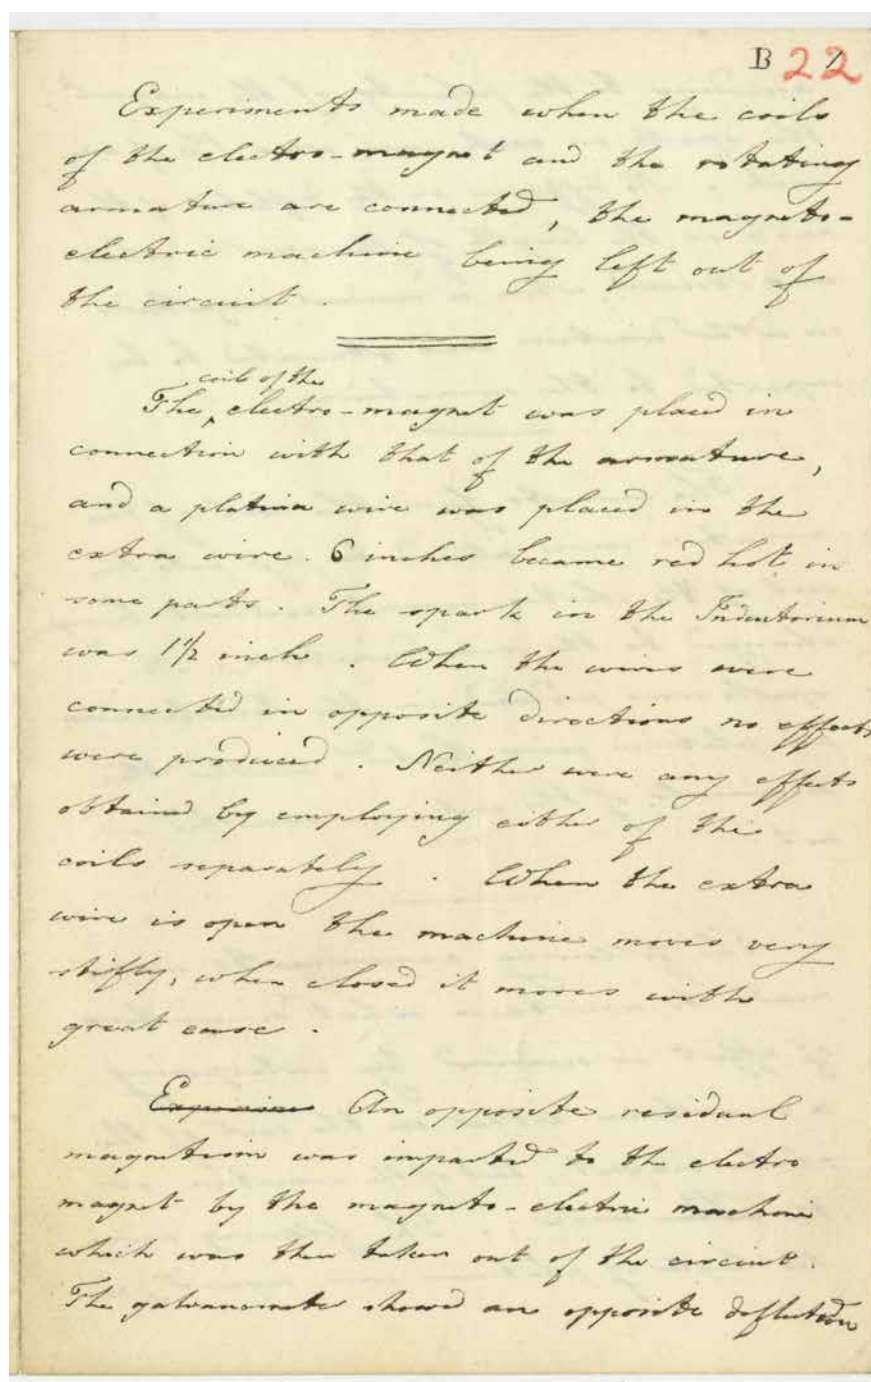 B 22
Experiments made when the coils
of the electro-magnet and the rotating
armature are connected, the magneto-
electric machine being left out of
the circuit.
coil of the
The electro-magnet was placed in
connection with that of the armature,
and a platina wire was placed in the
extra wire. 6 inches became red hot in
some parts. The spark in the Inductorium
was 1 1/2 inch. When the wires were
connected in opposite directions no effects
were produced. Neither were any effects
obtained by employing either of the
coils separately. When the extra
wire is open the machine moves very
stifly, when closed it moves with
great ease.
An opposite residual
magnetism was imparted to the electro
magnet by the magneto-electric machine
which was then taken out of the circuit.
The galvanometer showed an opposite deflection